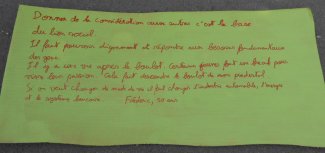 Donner de la considération aux autres c'est la base
du lien social.
Il faut pouvoir dignement et répondre aux besoins fondamentaux
des gens.
Il y a une vie après le boulot. Certains jeunes font un break pour
vivre leur passion. Cela fait descendre le boulot de son piédestal.
Si on veut changer de mode de vie il faut changer l'industrie automobile, l'énergie
et le système bancaire. Frédéric, 50 ans